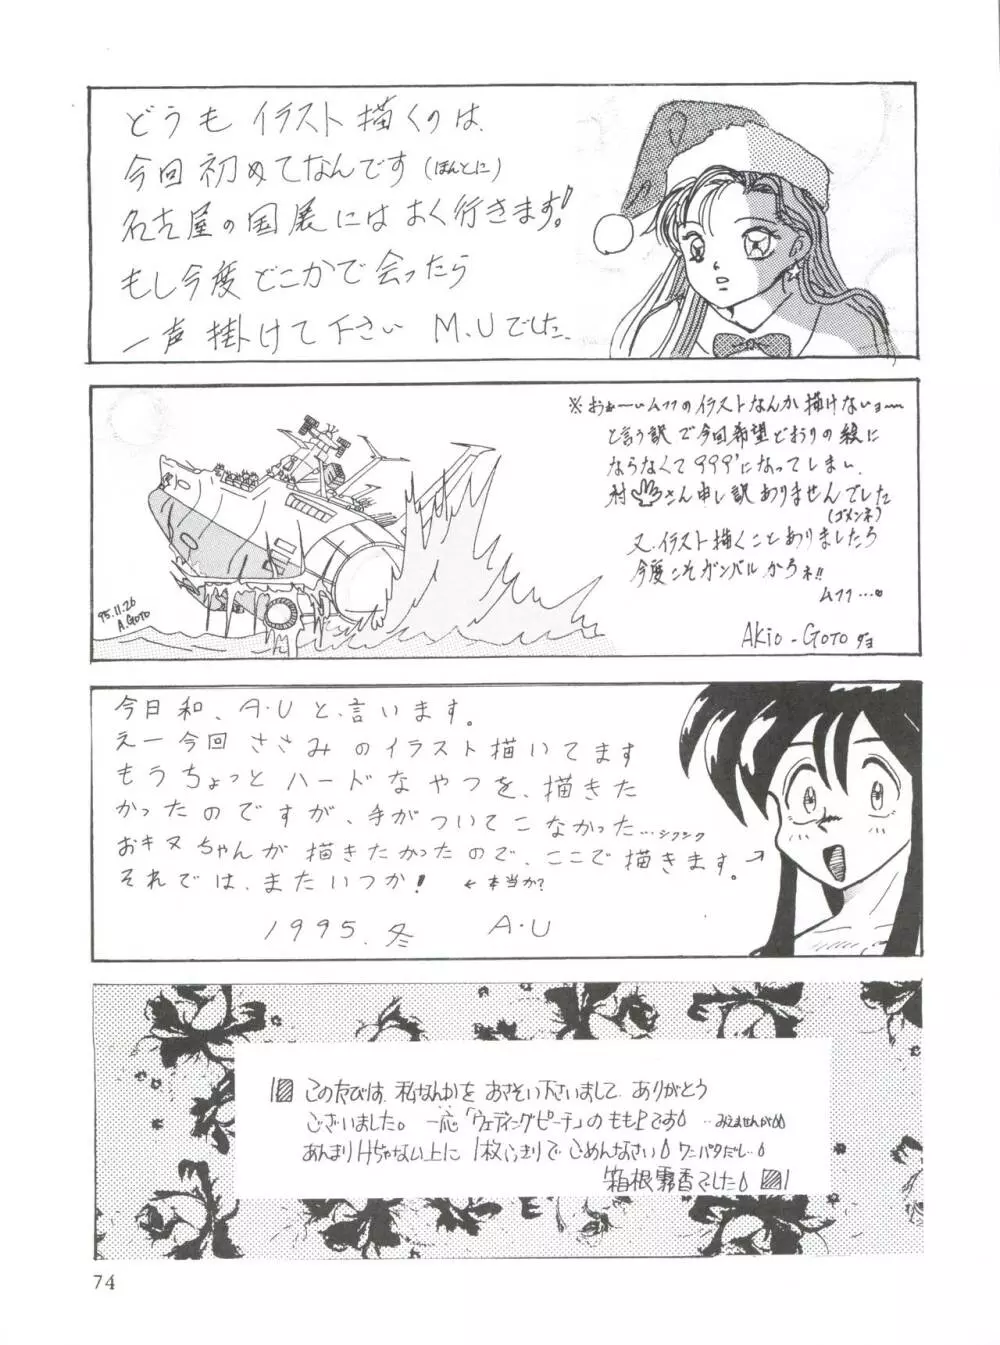 どうも イラスト描くのは、
今回初めてなんです(ほんとに)
名古屋の国展にはよく行きます!!
もし今度どこかで会ったら
一声掛けて下さい M.Uでした。
※おぉーいムフフのイラストなんか描けないョー
と言う訳で今回希望どおりの絵に
ならなくて999'になってしまい
村さん申し訳ありませんでした
(ゴメンネ)
又、イラスト描くことありましたら
今度こそガンバルからネ!!
ムフフ…
'95.11.26
A.GOTO
Akio-GOTO ダヨ
今日和、A・Uと、言います。
えー今回ささみのイラスト描いてます
もうちょっとハードなやつを、描きた
かったのですが、手がついてこなかった…シクシク
おキヌちゃんが描きたかったので、ここで描きます。→
それでは、またいつか! ←本当か?
1995.冬 A・U
このたびは、私なんかをおさそい下さいまして、ありがとう
ございました。一応「ウェディングピーチ」のももPです ‥みえませんが
あんまりHぢゃない上に1枚っきりでごめんなさい ワンパタだし‥
箱根霧香でした
74